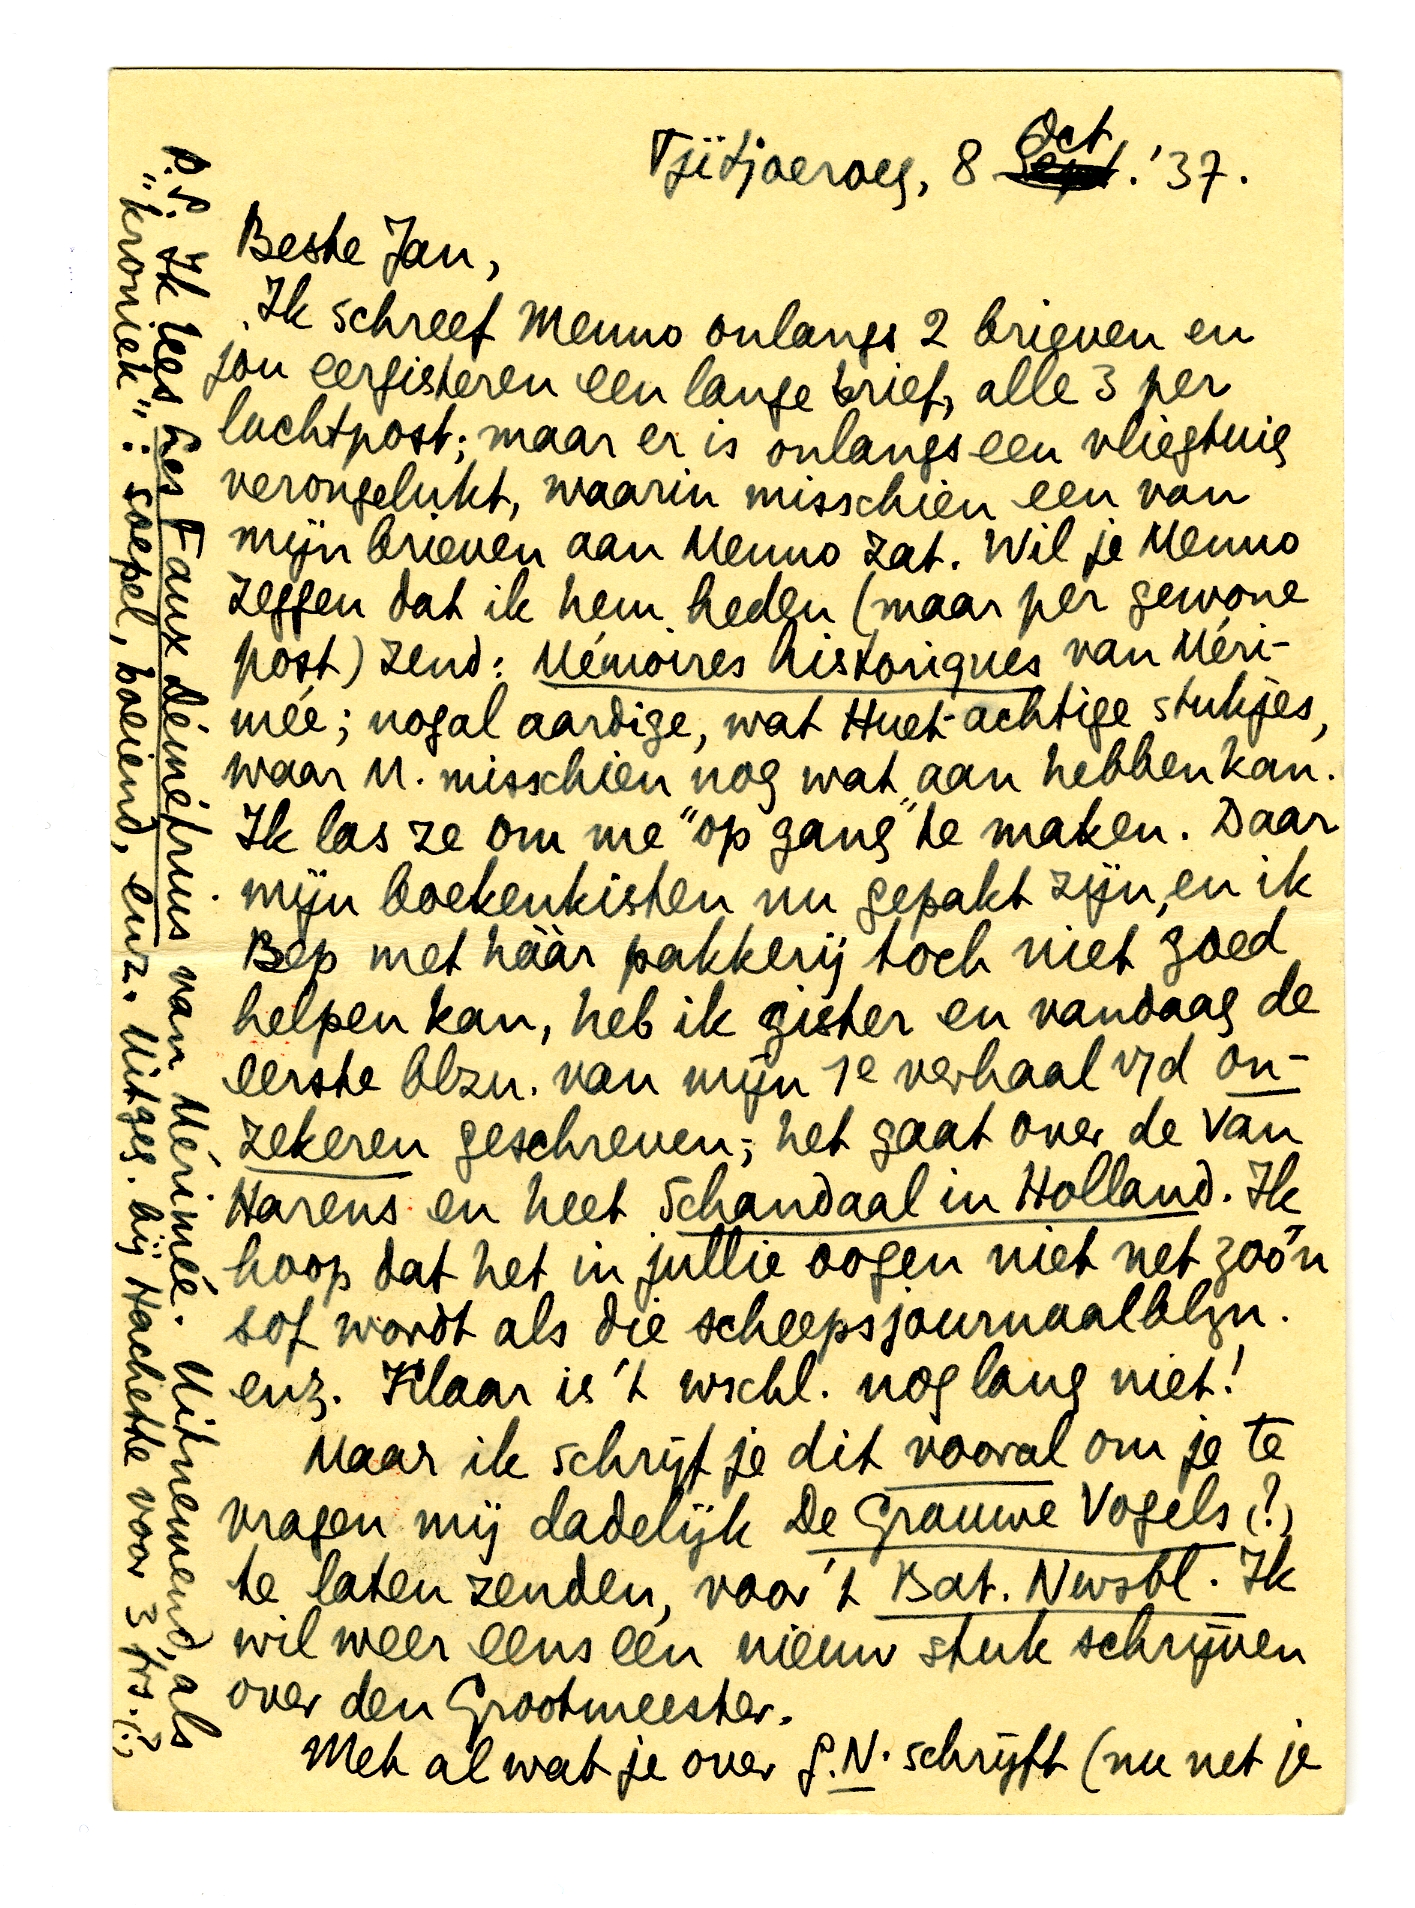 Tjitjoeroeg, 8 Oct. '37.
Beste Jan,
Ik schreef Menno onlangs 2 brieven en
jou eergisteren een lange brief, alle 3 per
luchtpost; maar er is onlangs een vliegtuig
verongelukt, waarin misschien een van
mijn brieven aan Menno zat. Wil je Menno
zeggen dat ik hem heden (maar per gewone
post) zend: Mémoires historiques van Méri-
mée; nogal aardige, wat Huet-achtige stukjes,
waar M. misschien nog wat aan hebben kan.
Ik las ze om me "op gang" te maken. Daar
mijn boekenkisten nu gepakt zijn, en ik
Bep met háár pakkerij toch niet goed
helpen kan, heb ik gister en vandaag de
eerste blzn. van mijn 1e verhaal v/d on-
zekeren geschreven; het gaat over de Van
Harens en heet Schandaal in Holland. Ik
hoop dat het in jullie oogen niet net zoo'n
sof wordt als die scheepsjournaalblzn.
enz. Klaar is 't wschl. nog lang niet!
Maar ik schrijf je dit vooral om je te
vragen mij dadelijk De Grauwe Vogels (?)
te laten zenden, voor 't Bat. Nwsbl. Ik
wil weer eens een nieuw stuk schrijven
over den Grootmeester.
Met al wat je over G.N. schrijft (nu net je
P.S. Ik lees Les Faux Démétrius van Mérimée. Uitnemend, als
"kroniek": soepel, boeiend, enz. Uitgeg. bij Hachette voor 3 frs. (?)